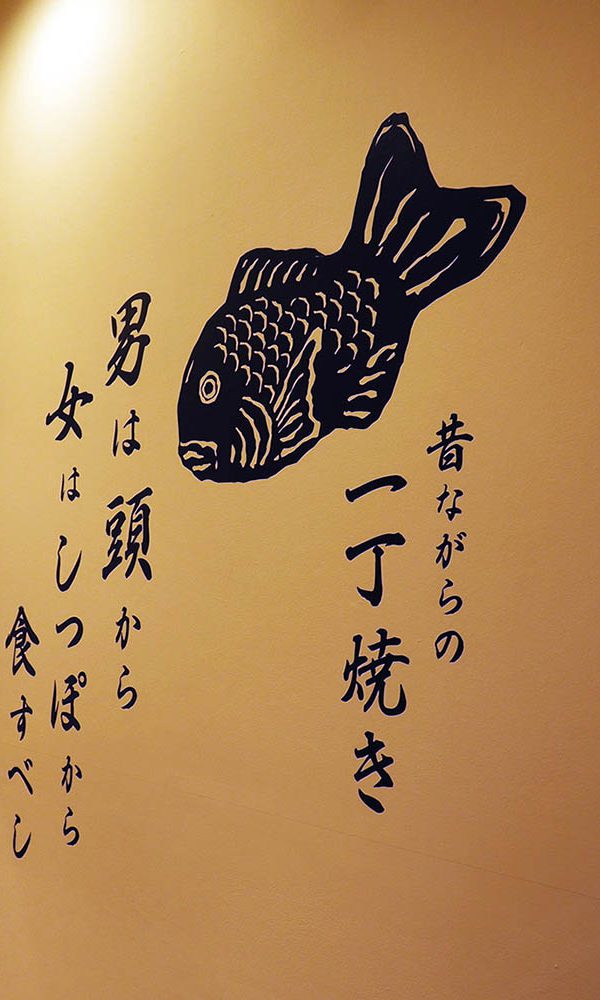 昔ながらの
一丁焼き
男は頭から
女はしっぽから
食すべし